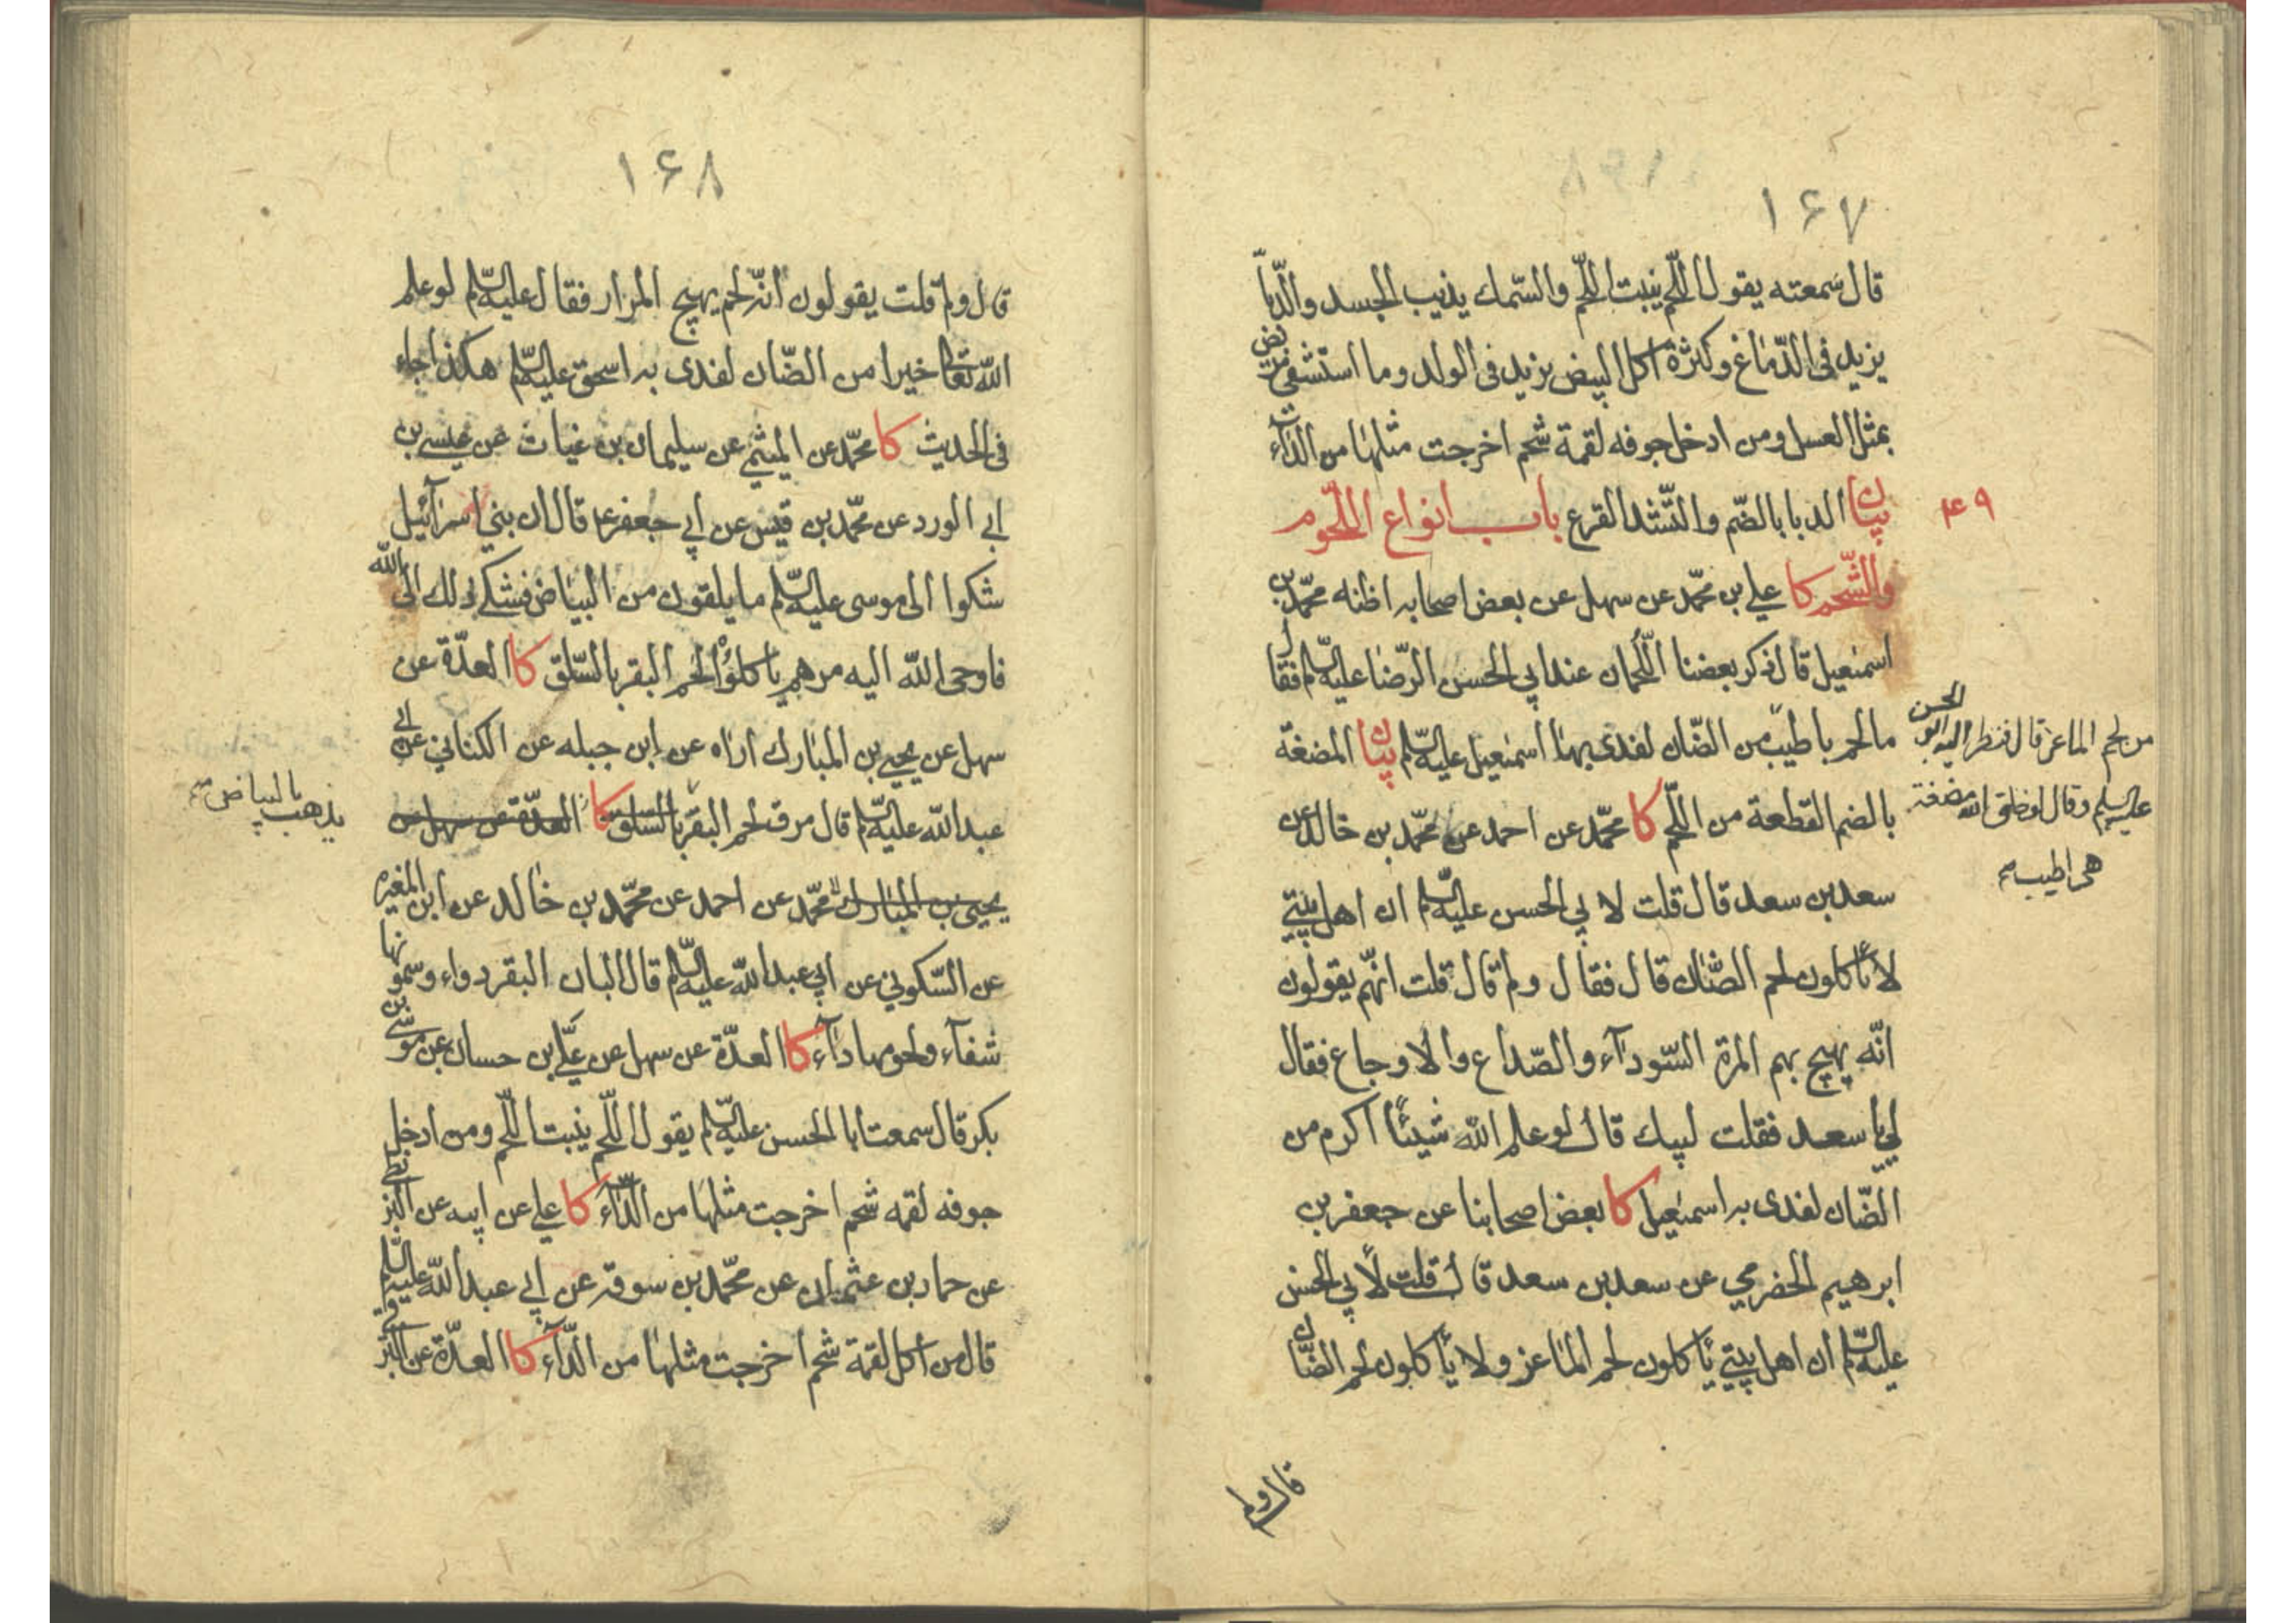 ١۶٧
قال سمعته يقول اللّحم ينبت اللّحم والسّمك يذيب الجسد والدّبآ
يزيد فى الدّماغ وكثرة اكل البيض يزيد فى الولد وما استشفى مريض
بمثل العسل ومن ادخل جوفه لقمة شحم اخرجت مثلها من الدّآء
۴٩
بيان الدبا بالضّم والتّشد القرع باب انواع اللّحوم
والشّحم كا علي بن محمّد عن سهل عن بعض اصحابه اظنه محمّد بن
اسمعيل قال ذكر بعضنا اللّحمان عند ابي الحسن الرّضا عليه السّلم فقال
ما لحم باطيب من الضّان لفدى بها اسمعيل عليه السّلم بيان المضغة
من لحم الماعز قال فنظر اليه ابو الحسن
عليه السلم وقال لو خلق الله مضغة
هى اطيب
بالضم القطعة من اللّحم كا محمّد عن احمد عن محمّد بن خالد عن
سعد بن سعد قال قلت لابي الحسن عليه السّلم ان اهل بيتي
لا ياكلون لحم الضّان قال فقال ولم قال قلت انّهم يقولون
انّه يهيج بهم المرة السّودآء والصّداع والاوجاع فقال
لي يا سعد فقلت لبيك قال لو علم الله شيئًا اكرم من
الضّان لفدى به اسمعيل كا بعض اصحابنا عن جعفر بن
ابرهيم الحضرمي عن سعد بن سعد قال قلت لابي الحسن
عليه السّلم ان اهل بيتي ياكلون لحم الماعز ولا ياكلون لحم الضّان
قال ولم
١۶٨
قال ولم قلت يقولون انّه لحم يهيج المرار فقال عليه السّلم لو علم
الله تعالى خيرا من الضّان لفدى به اسحق عليه السّلم هكذا جاء
فى الحديث كا محمّد عن الميثمي عن سليمان بن غياث عن عيسى بن
ابي الورد عن محمّد بن قيس عن ابي جعفر ع قال ان بني اسرآئيل
شكوا الى موسى عليه السّلم ما يلقون من البياض فشكى ذلك الى الله
فاوحى الله اليه مرهم ياكلوا لحم البقر بالسّلق كا العدّة عن
سهل عن يحيى بن المبارك اراه عن ابن جبله عن الكناني عن ابي
عبد الله عليه السّلم قال مرق لحم البقر بالسّلق كا العدّة عن سهل عن
يذهب بالبياض
يحيى بن المبارك محمّد عن احمد عن محمّد بن خالد عن ابن المغيره
عن السّكوني عن ابي عبد الله عليه السّلم قال البان البقر دواء وسمونها
شفآء ولحومها دآء كا العدّة عن سهل عن علي بن حسان عن موسى بن
بكر قال سمعت ابا الحسن عليه السّلم يقول اللّحم ينبت اللّحم ومن ادخل
جوفه لقمه شحم اخرجت مثلها من الدّآء كا علي عن ابيه عن البزنطي
عن حماد بن عثمان عن محمّد بن سوقه عن ابي عبد الله عليه السّلم
قال من اكل لقمة شحم اخرجت مثلها من الدّآء كا العدّة عن البرقي